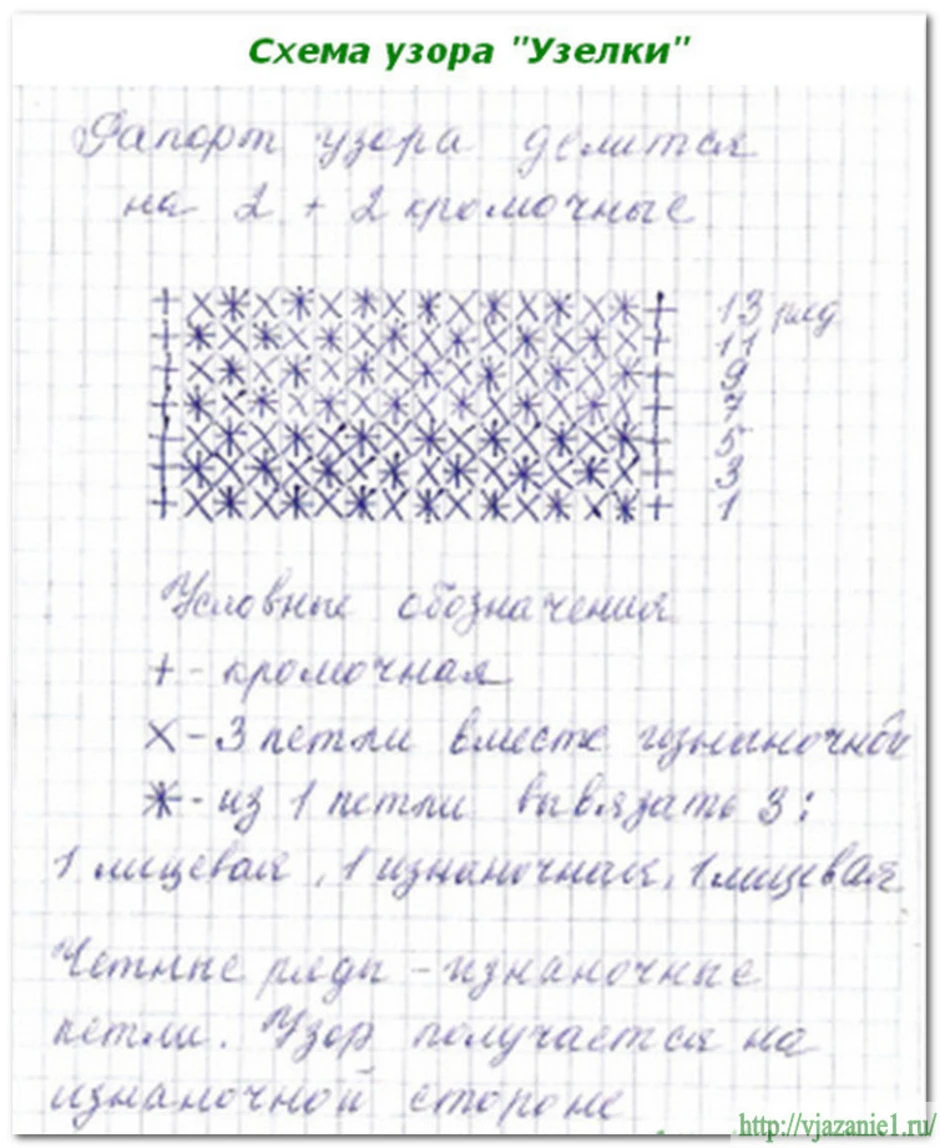 Схема узора "Узелки"
Рапорт узора делится
на 2 + 2 кромочные
+ X Ж X Ж X Ж X Ж X Ж X Ж X Ж + 13 ряд
+ Ж X Ж X Ж X Ж X Ж X Ж X Ж X + 11
+ X Ж X Ж X Ж X Ж X Ж X Ж X Ж + 9
+ Ж X Ж X Ж X Ж X Ж X Ж X Ж X + 7
+ X Ж X Ж X Ж X Ж X Ж X Ж X Ж + 5
+ Ж X Ж X Ж X Ж X Ж X Ж X Ж X + 3
+ X Ж X Ж X Ж X Ж X Ж X Ж X Ж + 1
Условные обозначения
+ - кромочная
X - 3 петли вместе изнаночной
Ж - из 1 петли вывязать 3:
1 лицевая, 1 изнаночная, 1 лицевая
Четные ряды - изнаночные
петли. Узор получается на
изнаночной стороне
http://vjazanie1.ru/